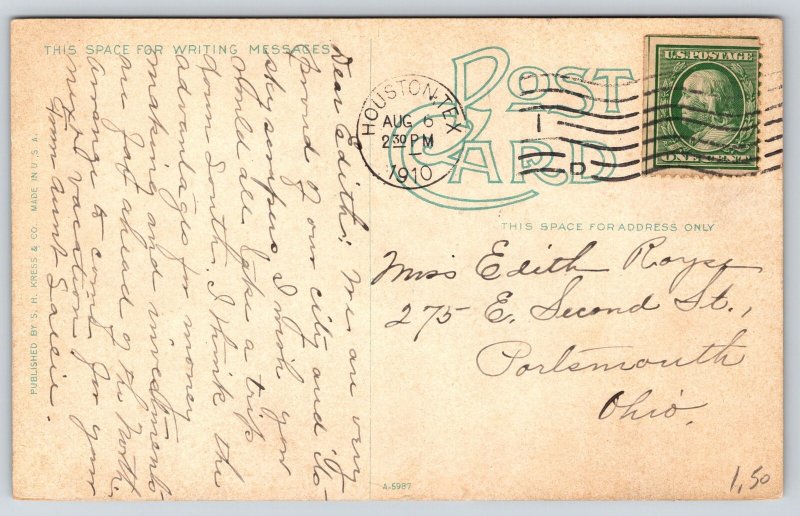 THIS SPACE FOR WRITING MESSAGES
POST CARD
HOUSTON, TEX
AUG 6
2 30 PM
1910
1
D
U.S. POSTAGE
ONE CENT
THIS SPACE FOR ADDRESS ONLY
Miss Edith Royse
275 E. Second St.,
Portsmouth
Ohio.
Dear Edith: We are very
proud of our city and its
sky scrapers, I wish you
could all take a trip
down South. I think the
advantages for money
making and investments
are far ahead of the North.
arrange to come for your
next vacation.
Your aunt
PUBLISHED BY S. H. KRESS & CO. MADE IN U.S.A.
A-5987
1,50